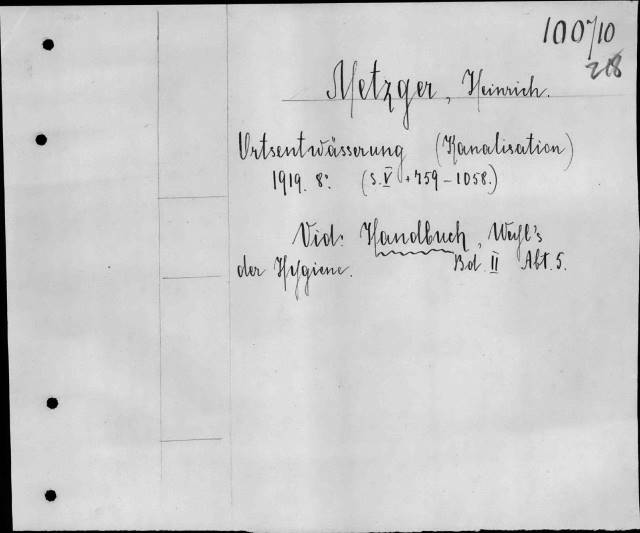 100710
218
Metzger, Heinrich.
Ortsentwässerung (Kanalisation)
1919. 8° (S. V + 759-1058.)
Vid: Handbuch, Weyl's
der Hygiene. Bd. II Abt. 5.